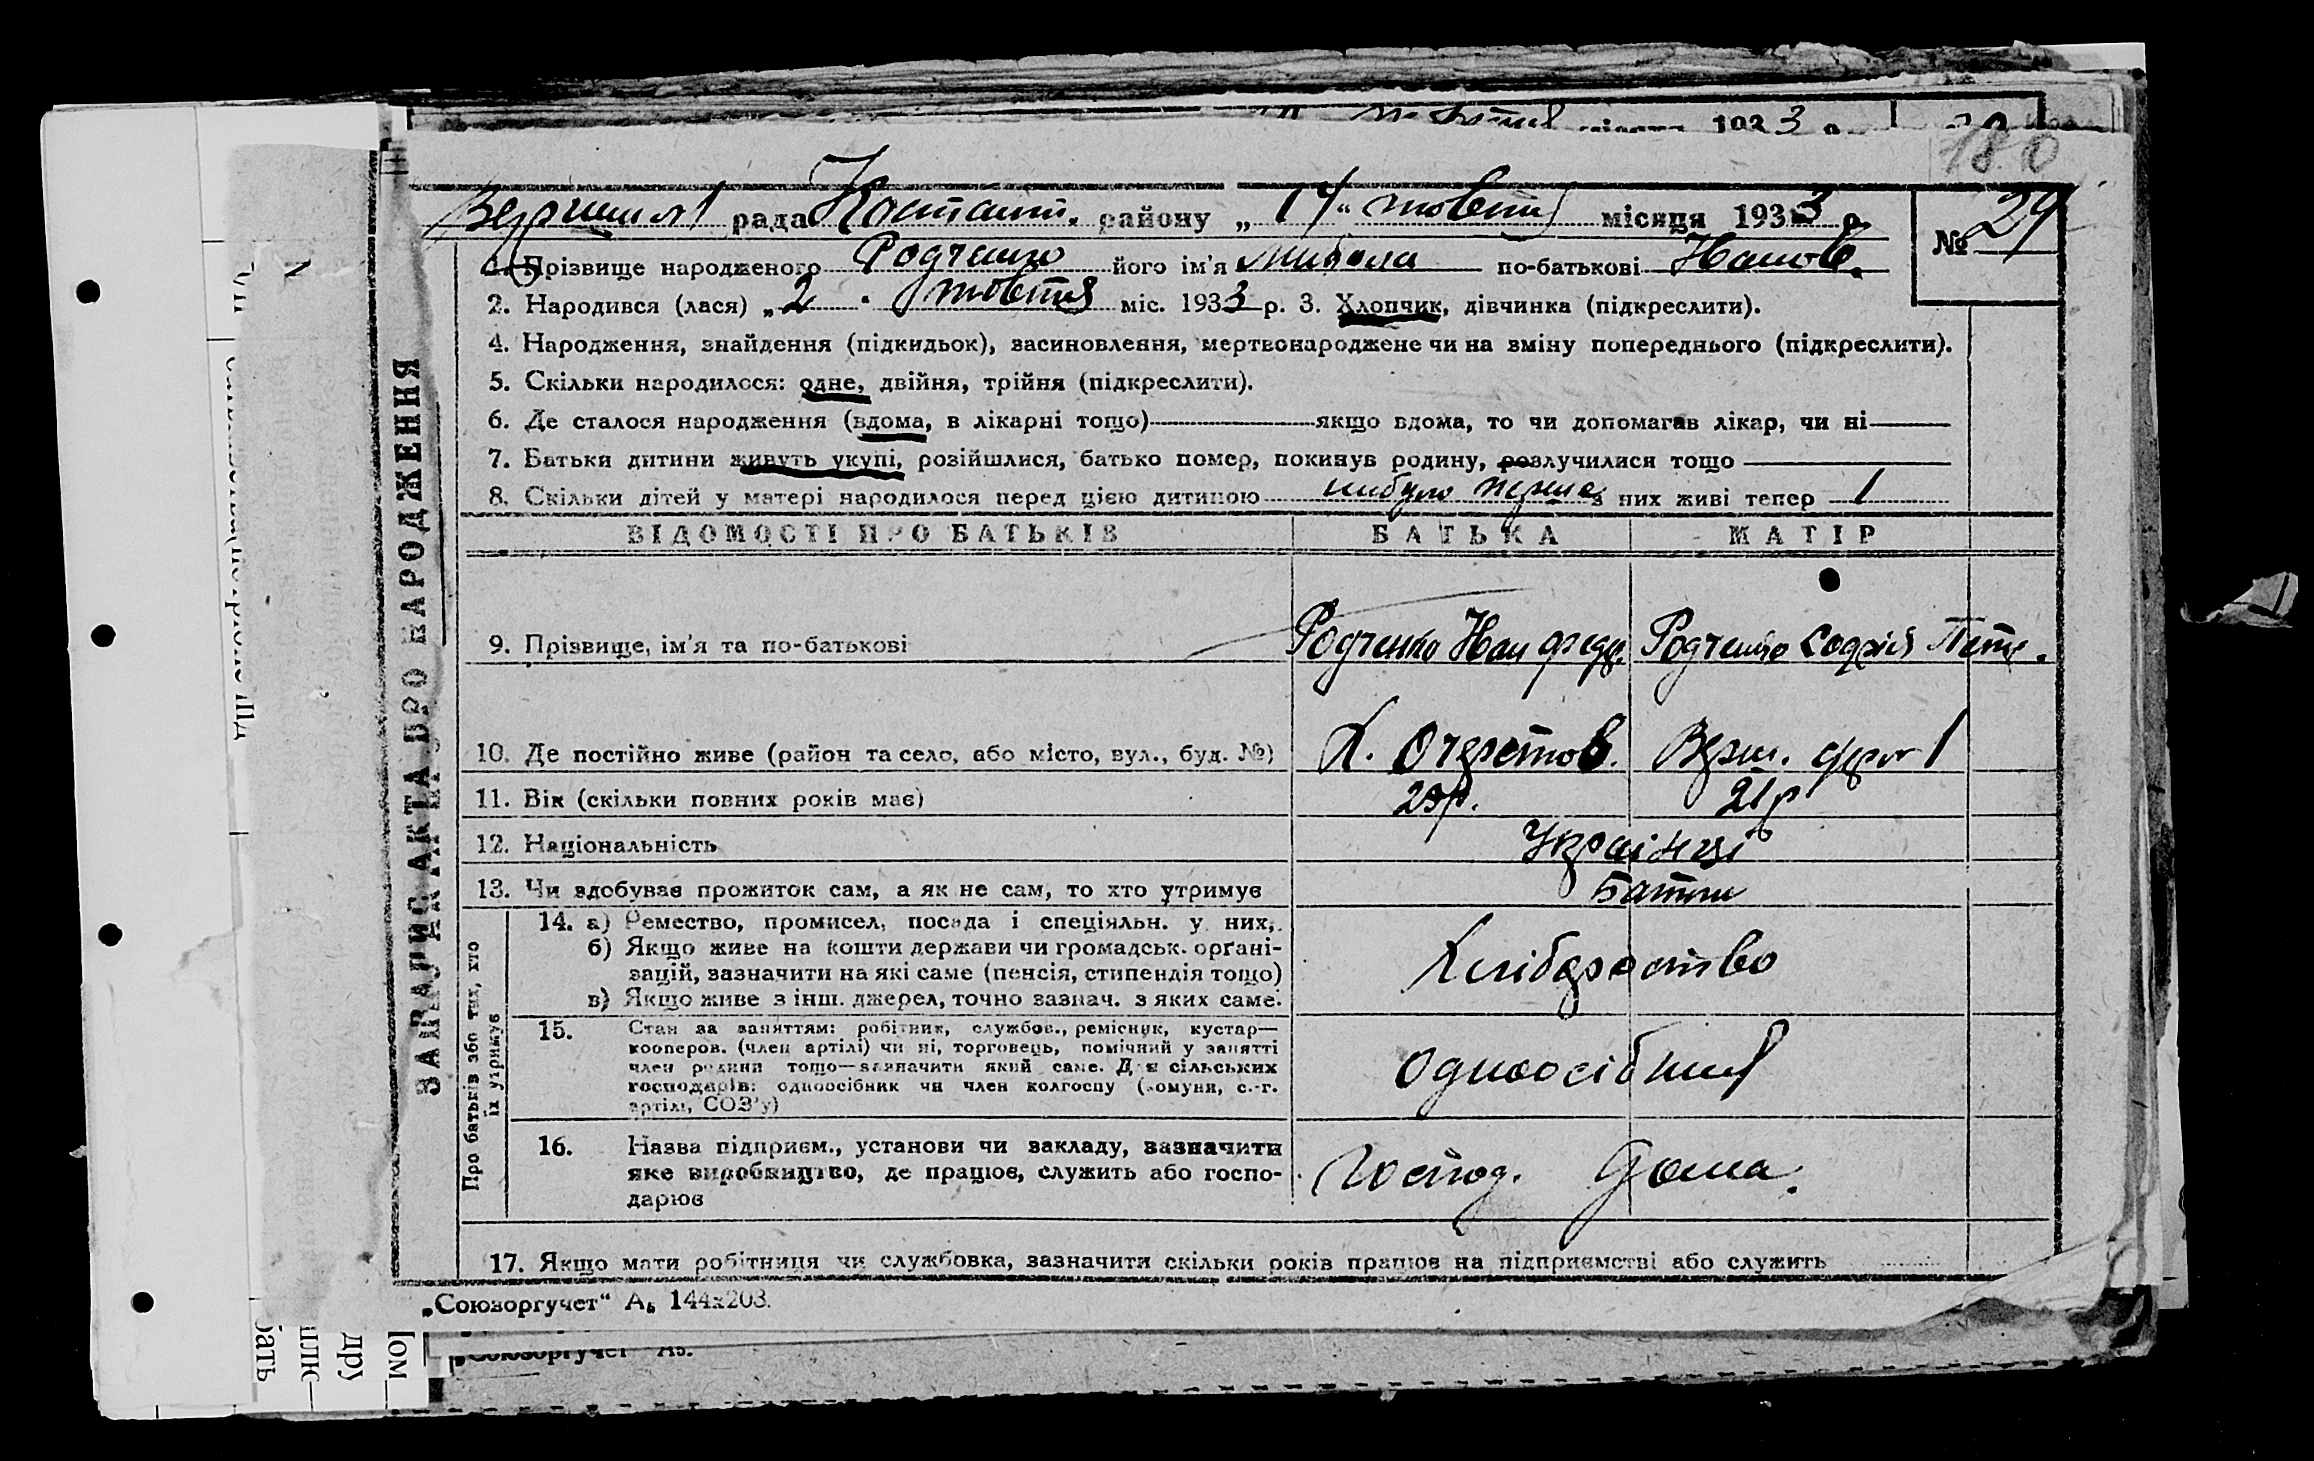 180
Вершин №1 рада Костянт. району „14“ жовтня місяця 1933 р. № 29
1. Прізвище народженого Родченко його ім'я Микола по-батькові Іванов.
2. Народився (лася) „2 . жовтня міс. 1933 р. 3. Хлопчик, дівчинка (підкреслити).
4. Народження, знайдення (підкидьок), засиновлення, мертвонароджене чи на зміну попереднього (підкреслити).
5. Скільки народилося: одне, двійня, трійня (підкреслити).
6. Де сталося народження (вдома, в лікарні тощо) якщо вдома, то чи допомагав лікар, чи ні
7. Батьки дитини живуть укупі, розійшлися, батько помер, покинув родину, розлучилися тощо
8. Скільки дітей у матері народилося перед цією дитиною небуло перша з них живі тепер 1
ВІДОМОСТІ ПРО БАТЬКІВ БАТЬКА МАТІР
9. Прізвище, ім'я та по-батькові Родченко Іван Федор. Родченко Софія Петр.
10. Де постійно живе (район та село, або місто, вул., буд. №) Х. Очеретов. Верш. №1
11. Вік (скільки повних років має) 23р. 21р
12. Національність Українці
13. Чи здобуває прожиток сам, а як не сам, то хто утримує Батьки
14. а) Ремество, промисел, посада і спеціяльн. у них,
б) Якщо живе на кошти держави чи громадськ. орґані-
зацій, зазначити на які саме (пенсія, стипендія тощо)
в) Якщо живе з інш. джерел, точно зазнач. з яких саме.
Хліборобство
15. Стан за заняттям: робітник, службов., ремісник, кустар—
кооперов. (член артілі) чи ні, торговець, помічний у занятті
член родини тощо—зазначити який саме. Для сільських
господарів: одноосібник чи член колгоспу (комуни, с.-г.
артілі, СОЗ'у)
Одноосібник
16. Назва підприєм., установи чи закладу, зазначити
яке виробництво, де працює, служить або госпо-
дарює
Господ. Дома.
17. Якщо мати робітниця чи службовка, зазначити скільки років працює на підприємстві або служить
„Союзоргучет“ А₆ 144x203.
ЗАПИС АКТА ПРО НАРОДЖЕННЯ
Про батьків або тих, хто
їх утримує